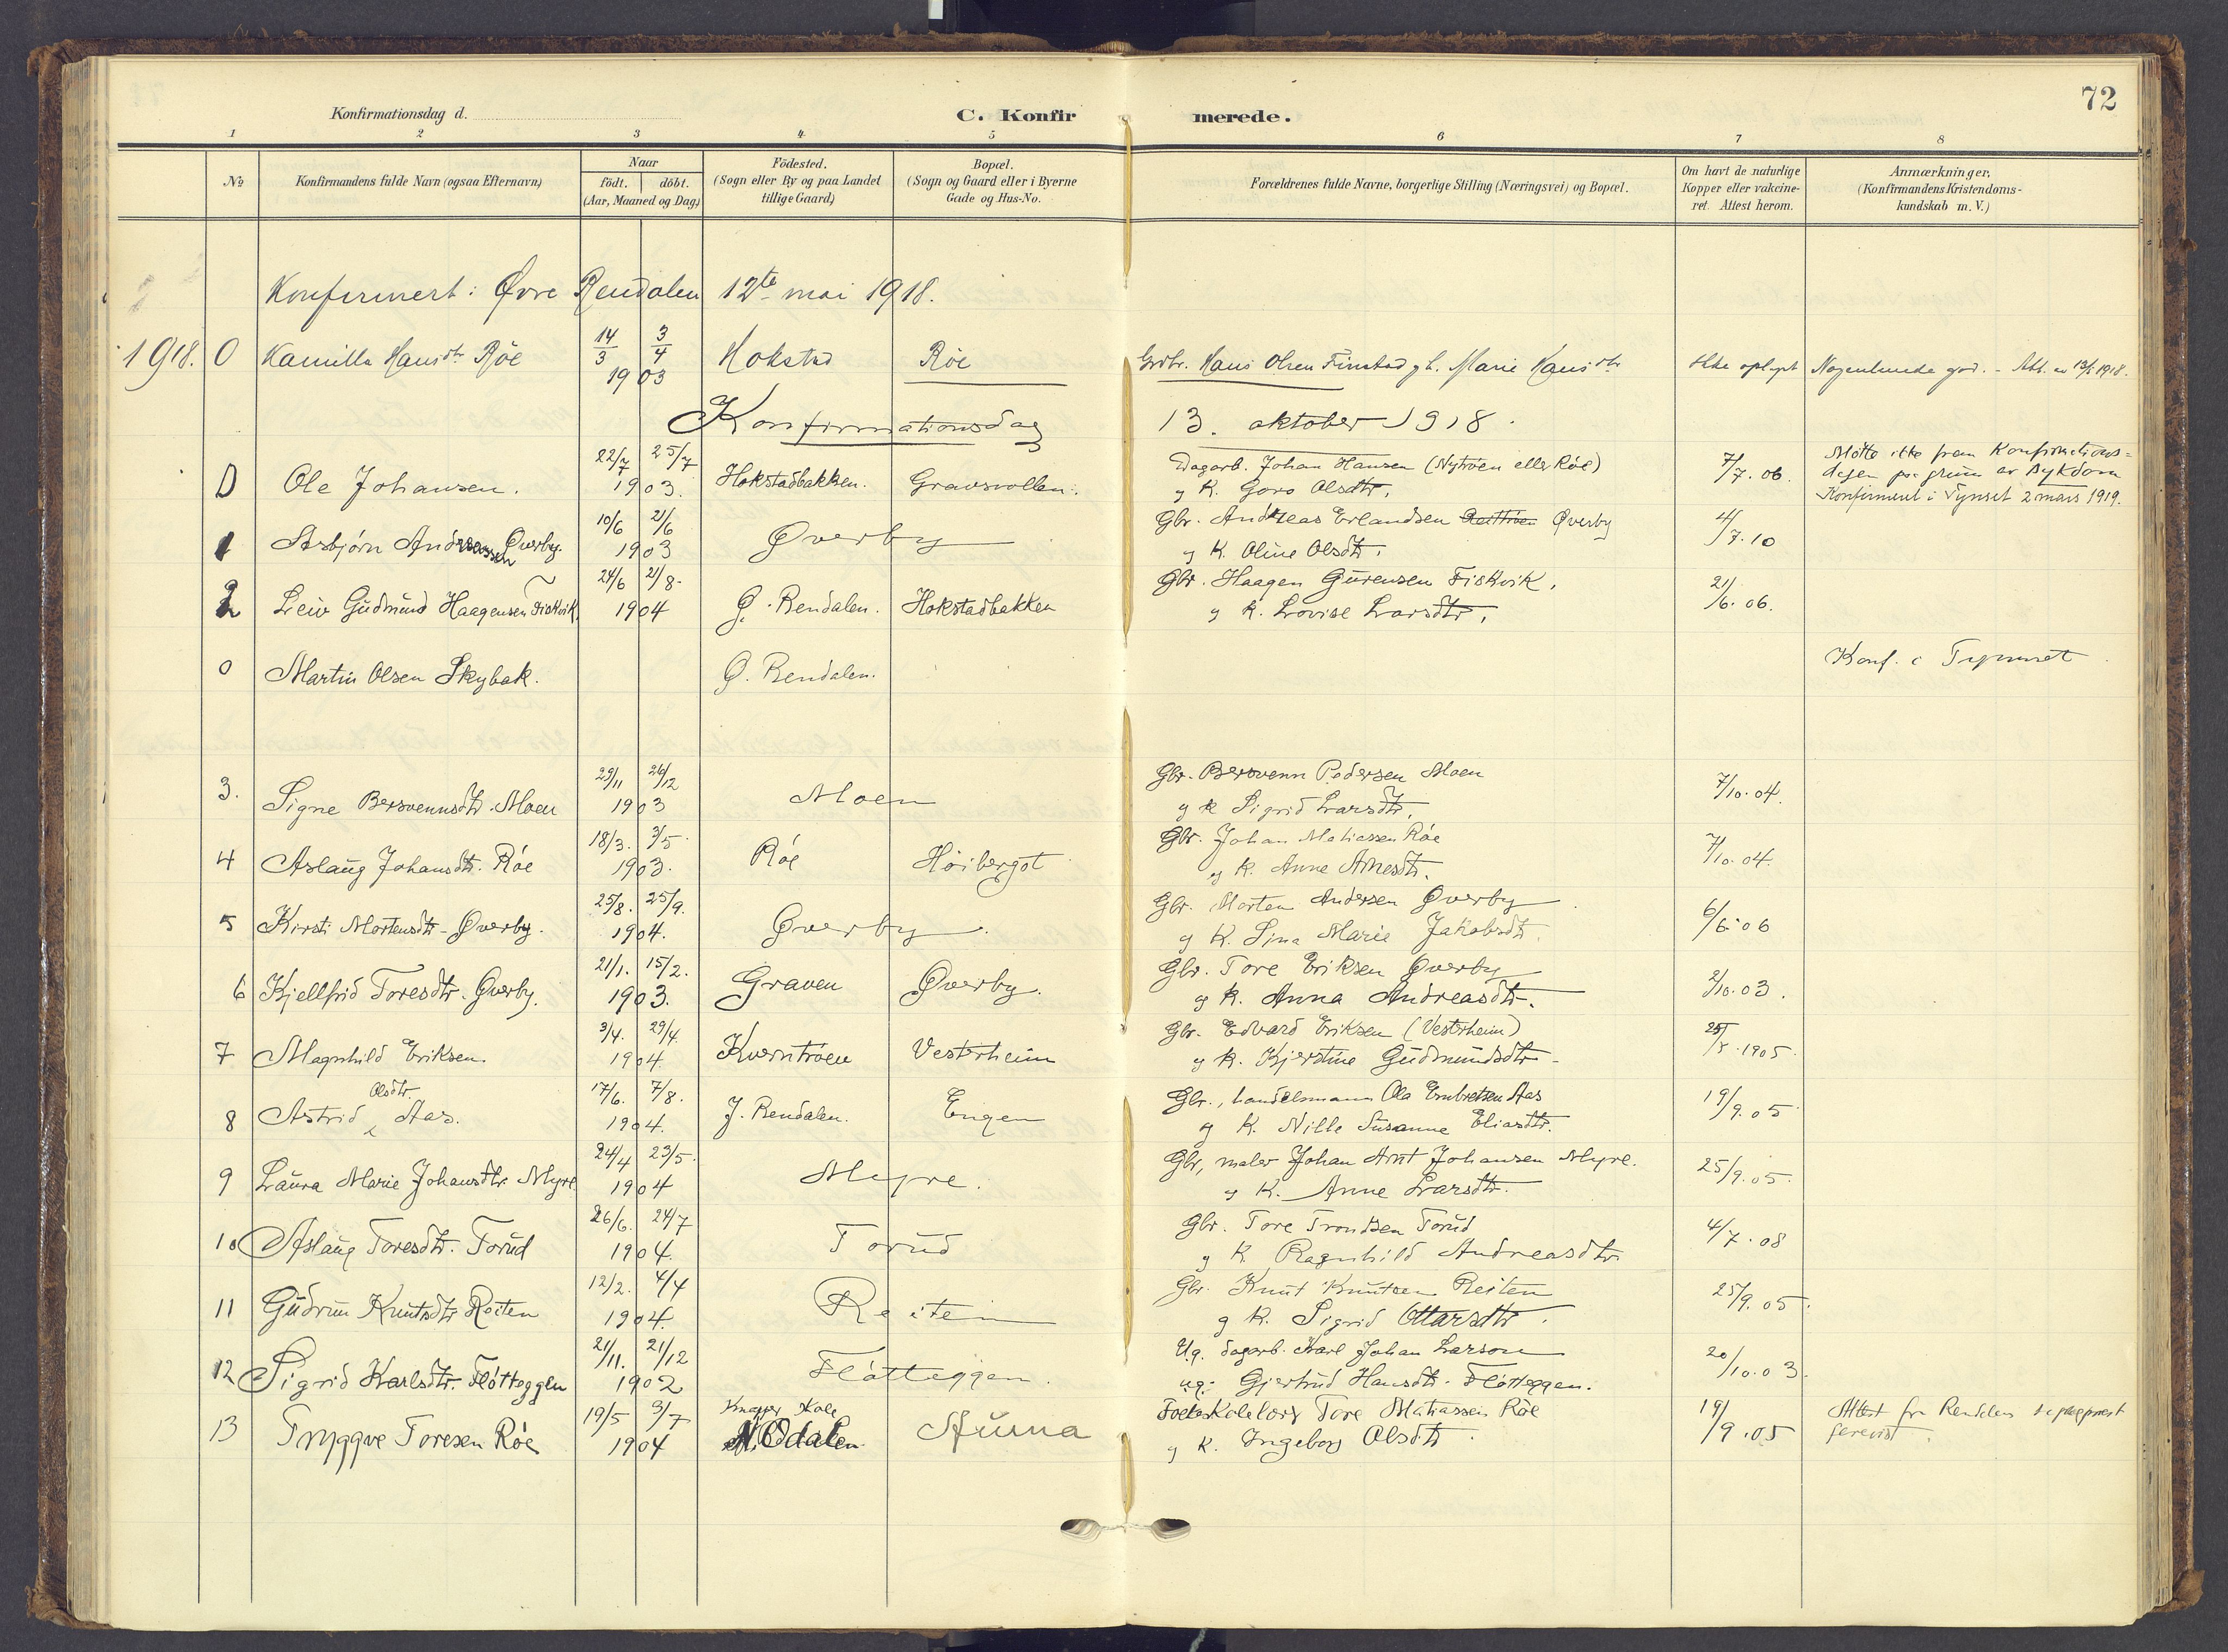 72
Konfirmationsdag d.
C. Konfir merede.
1 2 3 4 5 6 7 8
No
Konfirmandens fulde Navn (ogsaa Efternavn)
Naar
födt. döbt.
(Aar, Maaned og Dag)
Födested.
(Sogn eller By og paa Landet
tillige Gaard)
Bopæl.
(Sogn og Gaard eller i Byerne
Gade og Hus-No.
Forældrenes fulde Navne, borgerlige Stilling (Næringsvei) og Bopæl.
Om havt de naturlige
Kopper eller vakcine-
ret. Attest herom.
Anmærkninger.
(Konfirmandens Kristendoms-
kundskab m. V.)
Konfirmert i Øvre Rendalen 12te mai 1918.
1918. 0 Kamilla Hansdtr Røe 14/3 3/4 1903 Hokstad Røe Grdbr. Hans Olsen Finstad g h. Marie Hansdtr Ikke oplyst Nogenlunde god. - Att. 1918.
Konfirmationsdag 13. oktober 1918.
0 Ole Johansen. 22/7 25/7 1903. Hokstadbakken. Gravsvollen. Dagarb. Johan Hansen (Nytrøen eller Røe)
g K. Goro Olsdtr. 7/7. 06.
Møtte ikke frem Konfirmations=
dagen paa grunn av sykdom
Konfirmeret i Tynset 2 mars 1919.
1 Asbjørn Andreassen Øverby. 10/6 21/6 1903 Øverby Gbr. Andreas Erlandsen Øverby
g K. Oline Olsdtr. 4/7. 10
2 Leiv Gudmund Haagensen Fiskvik 24/6 21/8. 1904 Ø. Rendalen. Hokstadbakken Gbr. Haagen Gurensen Fiskvik,
g K. Lovise Larsdtr. 21/6. 06.
0 Martin Olsen Skybak. Ø. Rendalen. Konf. i Tynset
3. Signe Bersvennsdtr. Moen 29/11 26/12 1903 Moen Gbr. Bersvenn Pedersen Moen
g K Sigrid Larsdtr. 7/10. 04.
4 Aslaug Johansdtr. Røe 18/3. 3/5. 1903. Røe Høiberget Gbr. Johan Matiassen Røe
g K. Anne Arnesdtr. 7/10. 04.
5 Kirsti Mortensdtr - Øverby. 25/8. 25/9. 1904. Øverby. Gbr. Morten Andersen Øverby
g K. Lina Marie Jakobsdtr. 6/6. 06
6 Kjellfrid Toresdtr. Øverby. 21/1. 15/2. 1903. Graven Øverby. Gbr. Tore Eriksen Øverby
g K. Anna Andreasdtr. 2/10. 03.
7 Magnhild Eriksen. 3/4. 29/4. 1904. Kverntrøen Vesterheim Gbr. Edvard Eriksen (Vesterheim)
g K. Kjerstine Gudmundsdtr - 25/5. 1905.
8 Astrid Olsdtr. Aas. 17/6. 7/8. 1904. Y. Rendalen. Engen Gbr., handelsmann Ola Embretsen Aas
g K. Nille Susanne Eliasdtr. 19/9. 05
9 Laura Marie Johansdtr. Myre 24/4 23/5. 1904 Myre. Gbr, maler Johan Arnt Johansen Myre.
g K. Anne Larsdtr. 25/9. 05.
10 Aslaug Toresdtr. Torud 26/6. 24/7 1904. Torud Gbr. Tore Trondsen Torud
g K Ragnhild Andreasdtr. 4/7. 08
11 Gudrun Knutsdtr. Reiten 12/2. 4/4 1904. Reiten Gbr. Knut Knutsen Reiten
g K. Sigrid Ottarsdtr. 25/9. 05.
12 Sigrid Karlsdtr. Fløtteggen 21/11. 21/12 1902 Fløtteggen. Ug. dagarb. Karl Johan Larson
ug. Gjertrud Hansdtr. Fløtteggen. 20/10. 03.
13 Tryggve Toresen Røe 19/5 3/7 1904 N. Odalen Tore Matiassen Røe
g K. Ingeborg Olsdtr. 19/9. 05 Attest fra Rendalen